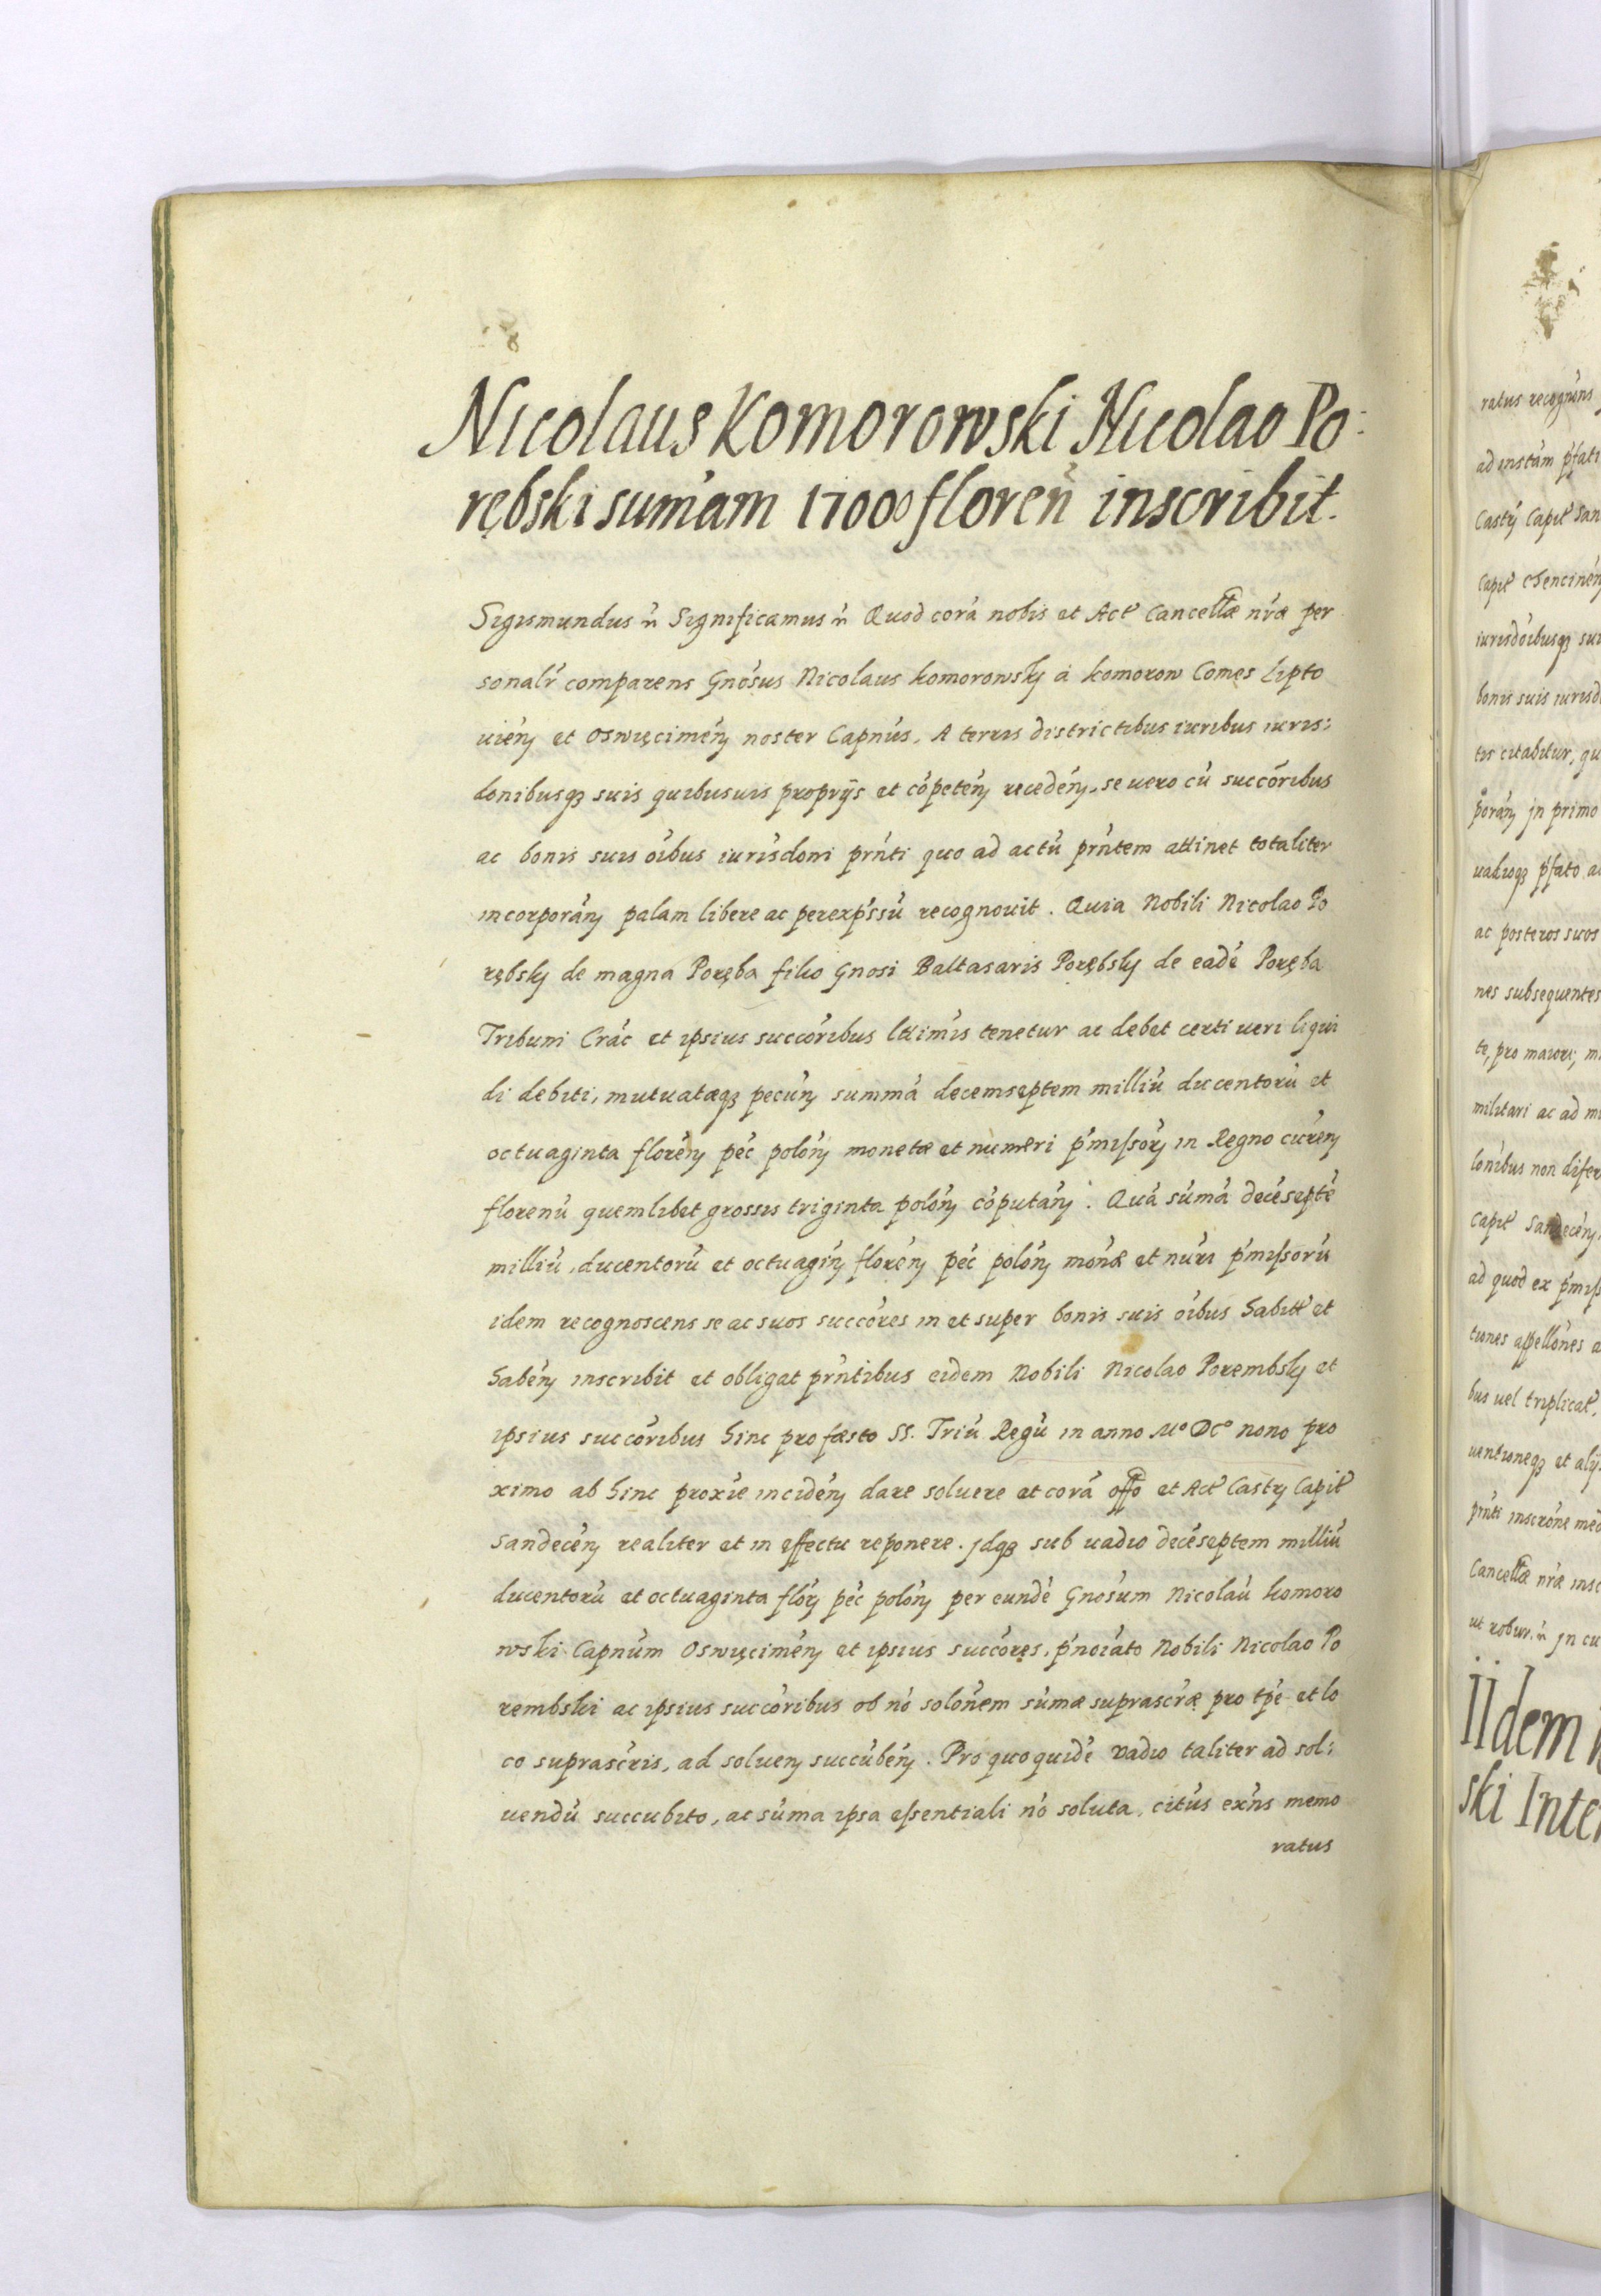 Nicolaus Komorowski Nicolao Po-
rębski sum̃am 17000 floreñ inscribit.
Sigismundus ñ Significamus ñ Quod corã nobis et Act̃ Cancellæ nr̃æ per
sonalr̃ comparens Gnõsus Nicolaus Komorowsky à Komorow Comes Lipto
uień et Oswięcimeń noster Capnũs, A terris districtibus iuribus iuris:
donibusqʒ suis quibusuis proprijs et cõpeteń recedeń, se uero cũ succõribus
ac bonis suis oĩbus iurisdoni prñti quo ad actũ prñtem attinet totaliter
incorporań palam libere ac perexpr̃ssũ recognouit. Quia Nobili Nicolao Po
rębsky de magna Poręba filio Gnosi Baltasaris Porębsky de eadẽ Poręba
Tribuni Crac̃ et ipsius succõribus lttimis tenetur ac debet certi ueri liqui
di debiti, mutuatæqʒ pecuń summã decemseptem milliũ ducentorũ et
octuaginta floreń pec̃ poloń monetæ et numeri p̃missorʒ in Regno cũreń
florenũ quemlibet grossis triginta poloń cõputań. Quã sũmã decẽseptẽ
milliũ, ducentorũ et octuagiń floreń pec̃ poloń monæ̃ et nũri p̃missorũ
idem recognoscens se ac suos succõres in et super bonis suis oĩbus habitt̃ et
habeń inscribit et obligat prñtibus eidem Nobili Nicolao Porembsky et
ipsius succõribus hinc pro fæsto SS. Triũ Regũ in anno Mº DCº nono pro
ximo ab hinc proxiẽ incideń dare soluere et corã offo et Act̃ Castrʒ Capit̃
Sandeceń realiter et in effectu reponere. jdqʒ sub uadio decẽseptem milliũ
ducentorũ et octuaginta flor̃ pec̃ poloń per eundẽ Gnõsum Nicolaũ Komoro
wski Capnũm Oswięcimeń et ipsius succõres, p̃noĩato Nobili Nicolao Po
rembski ac ipsius succõribus ob nõ solonẽm sũmæ suprascr̃æ pro tp̃e et lo
co suprascr̃is, ad solueń succũbeń. Pro quo quidẽ vadio taliter ad sol:
uendũ succubito, ac sũma ipsa essentiali nõ soluta, citũs exñs memo
ratus
ratus recogñns
ad instãm p̃fati
Castrʒ Capit̃ San
Capit̃
iurisdoĩbusqʒ sui
bonis suis iurisd
tis citabitur, qu
porań jn primo
uadioqʒ p̃fato ac
ac posteros suos
nes subsequentes
te, pro maiori, m
militari ac ad mi
lonibus non difer
Capit̃ Sandeceń
ad quod ex p̃miss
tiones appellones a
bus uel triplicat̃,
uentioneqʒ et alij
prñti inscrõne med
Cancellæ nr̃æ insc
ut robur. ñ jn cu
IIdem K
ski Inter